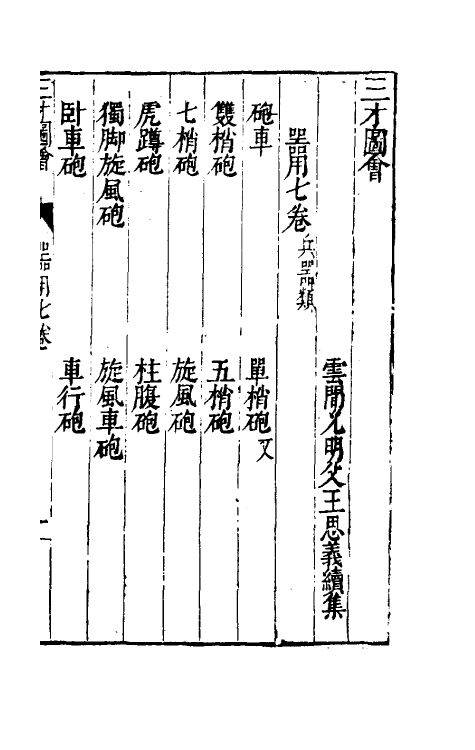 三才圖會
雲間允明父王思義續集
器用七卷 兵器類
砲車 單梢砲又
雙梢砲 五梢砲
七梢砲 旋風砲
虎蹲砲 柱腹砲
獨脚旋風砲 旋風車砲
臥車砲 車行砲
三才圖會 器用七卷 一